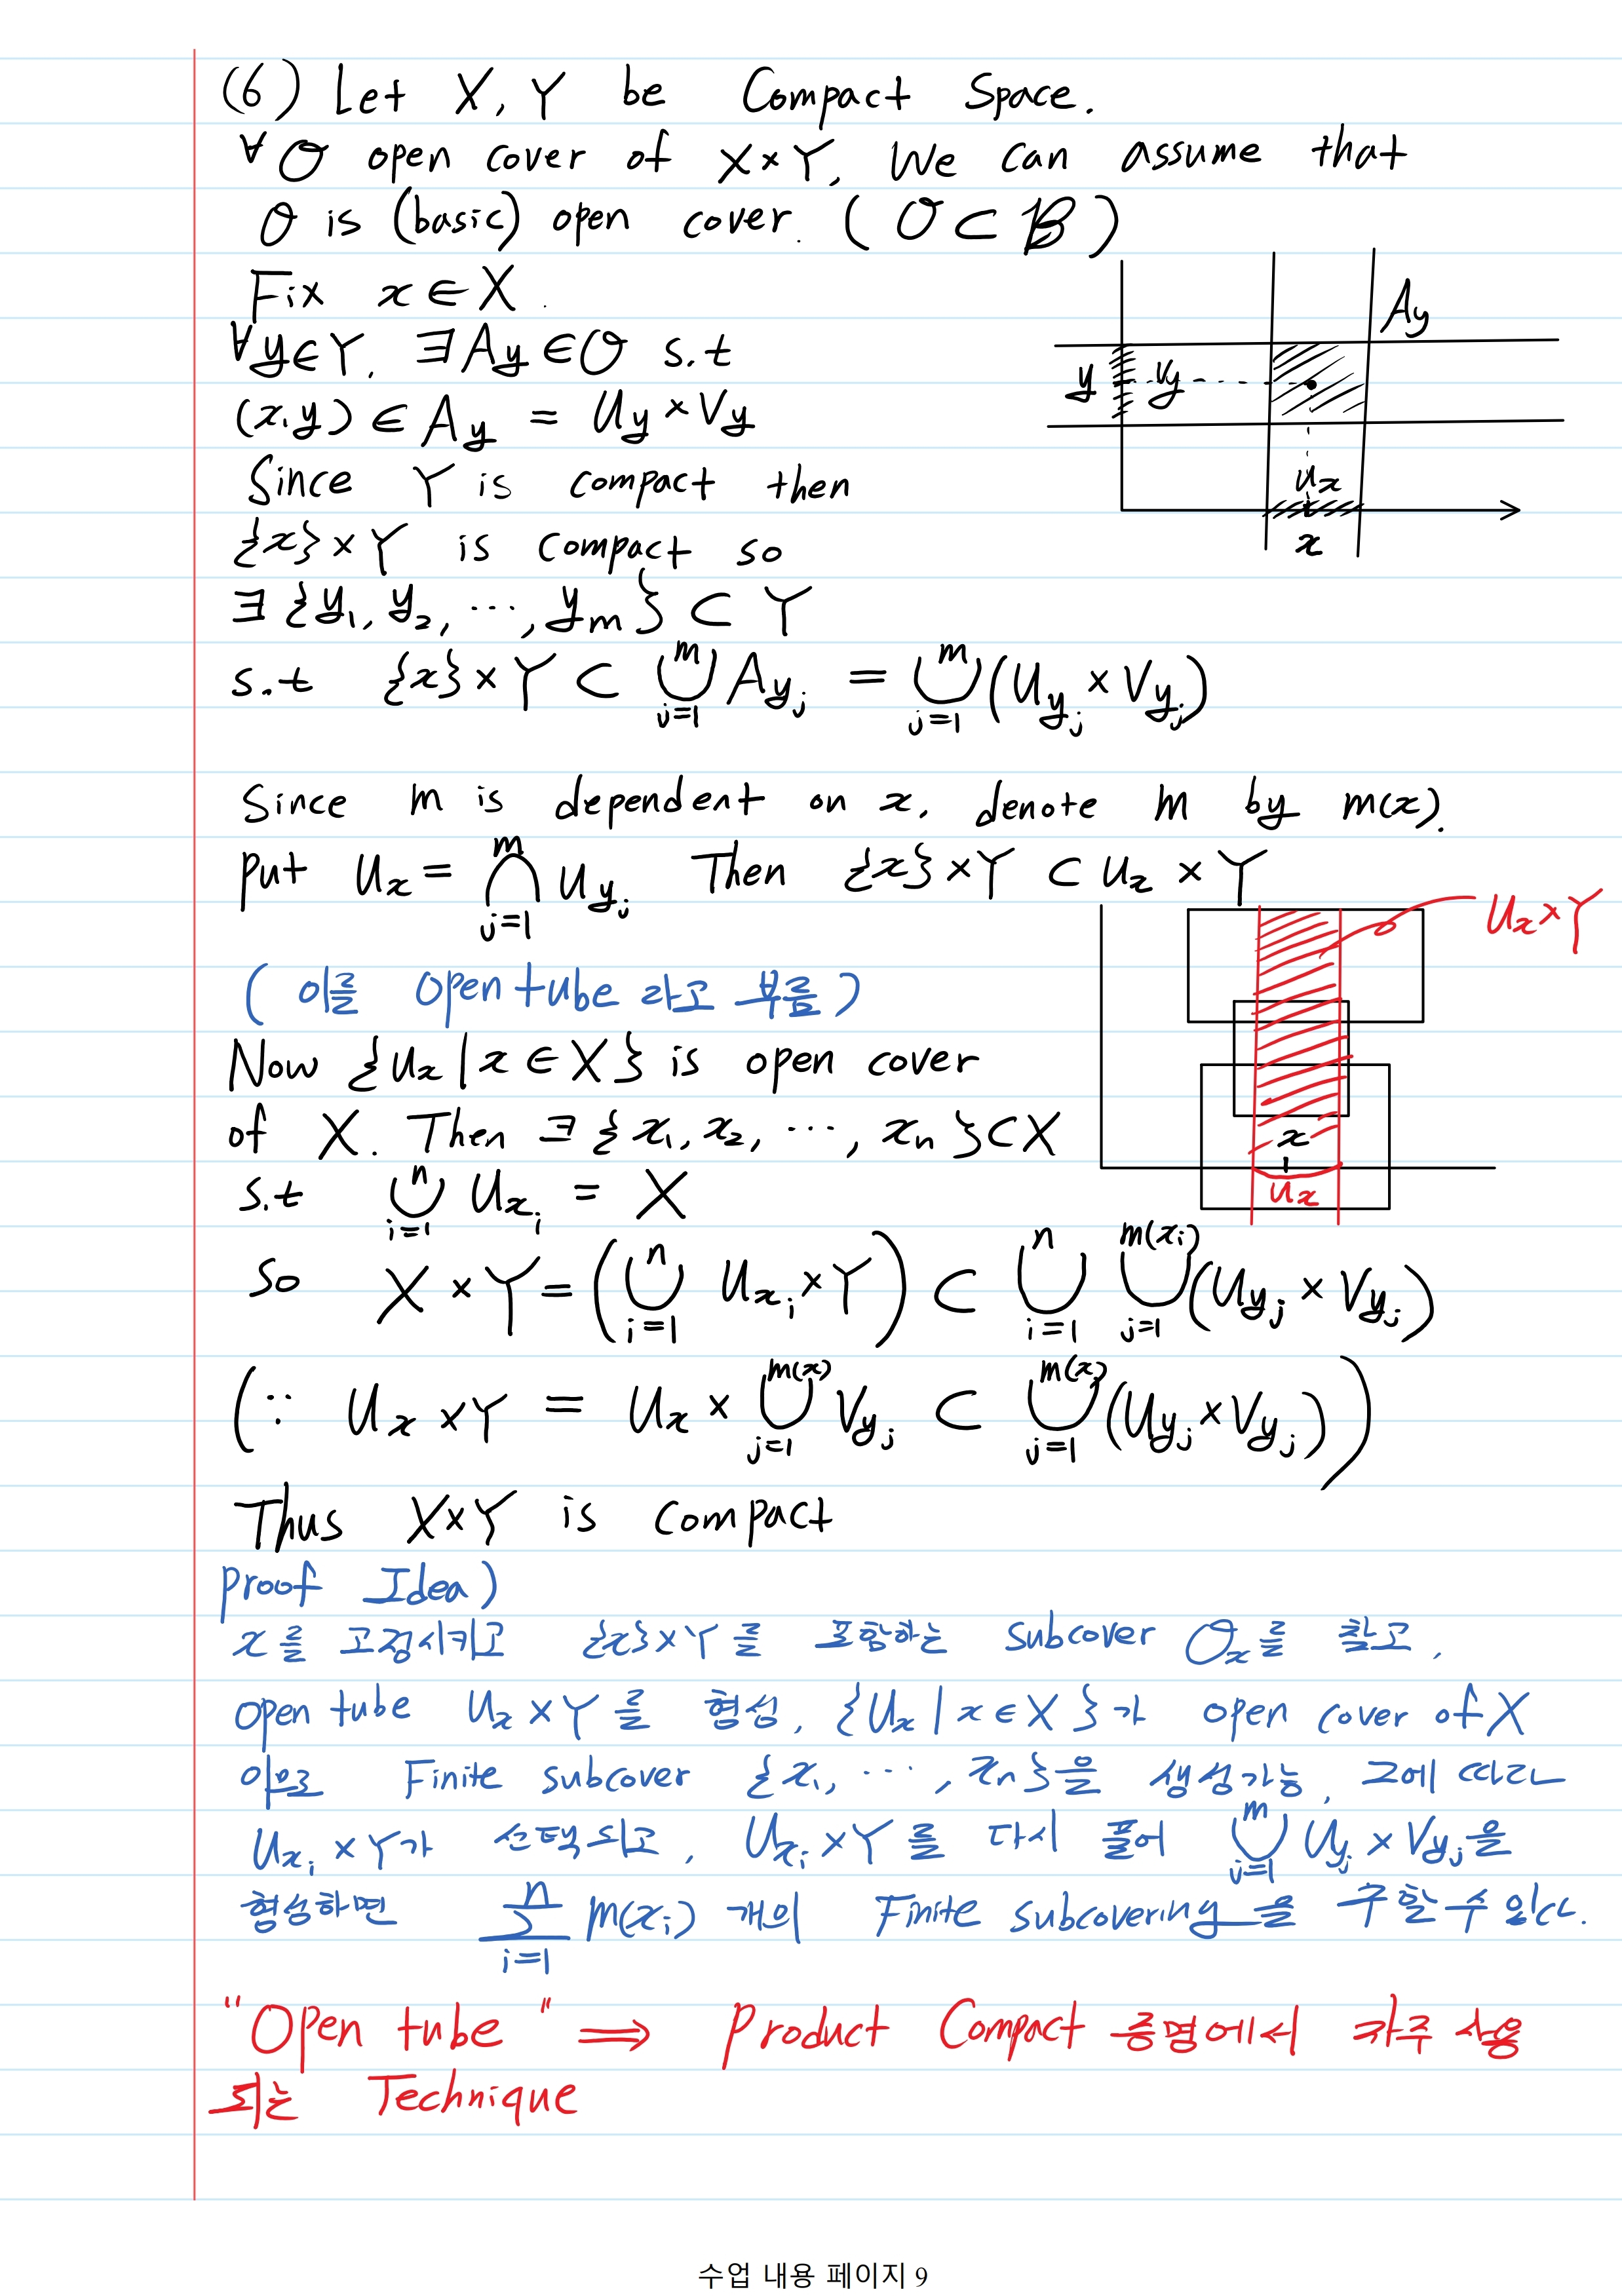 (6) Let X, Y be Compact Space.
∀ O open cover of X×Y, We can assume that
O is (basic) open cover. (O ⊂ B)
Fix x ∈ X.
∀y∈Y, ∃A_y ∈ O s.t
(x,y) ∈ A_y = U_y × V_y
Since Y is compact then
{x}×Y is compact so
∃ {y_1, y_2, ⋯, y_m} ⊂ Y
s.t {x}×Y ⊂ ⋃_{j=1}^{m} A_{y_j} = ⋃_{j=1}^{m} (U_{y_j} × V_{y_j})
A_y
y V_y
U_x
x
Since m is dependent on x, denote m by m(x).
Put U_x = ⋂_{j=1}^{m} U_{y_j} Then {x}×Y ⊂ U_x × Y
(이를 Open tube 라고 부름)
Now {U_x | x ∈ X} is open cover
of X. Then ∃ {x_1, x_2, ⋯, x_n} ⊂ X
s.t ⋃_{i=1}^{n} U_{x_i} = X
U_x×Y
x
U_x
So X×Y = (⋃_{i=1}^{n} U_{x_i}×Y) ⊂ ⋃_{i=1}^{n} ⋃_{j=1}^{m(x_i)} (U_{y_j} × V_{y_j})
(∵ U_x×Y = U_x × ⋃_{j=1}^{m(x)} V_{y_j} ⊂ ⋃_{j=1}^{m(x)} (U_{y_j}×V_{y_j}))
Thus X×Y is compact
proof Idea)
x를 고정시키고 {x}×Y를 포함하는 Subcover O_x를 찾고,
open tube U_x×Y를 형성, {U_x | x∈X}가 open cover of X
이므로 Finite subcover {x_1, ⋯, x_n}을 생성가능, 그에 따라
U_{x_i}×Y가 선택되고, U_{x_i}×Y를 다시 풀어 ⋃_{j=1}^{m} U_{y_j} × V_{y_j}을
형성하면 ∑_{i=1}^{n} m(x_i) 개의 Finite subcovering을 구할 수 있다.
"Open tube" ⟹ product Compact 증명에서 자주 사용
되는 Technique
수업 내용 페이지 9